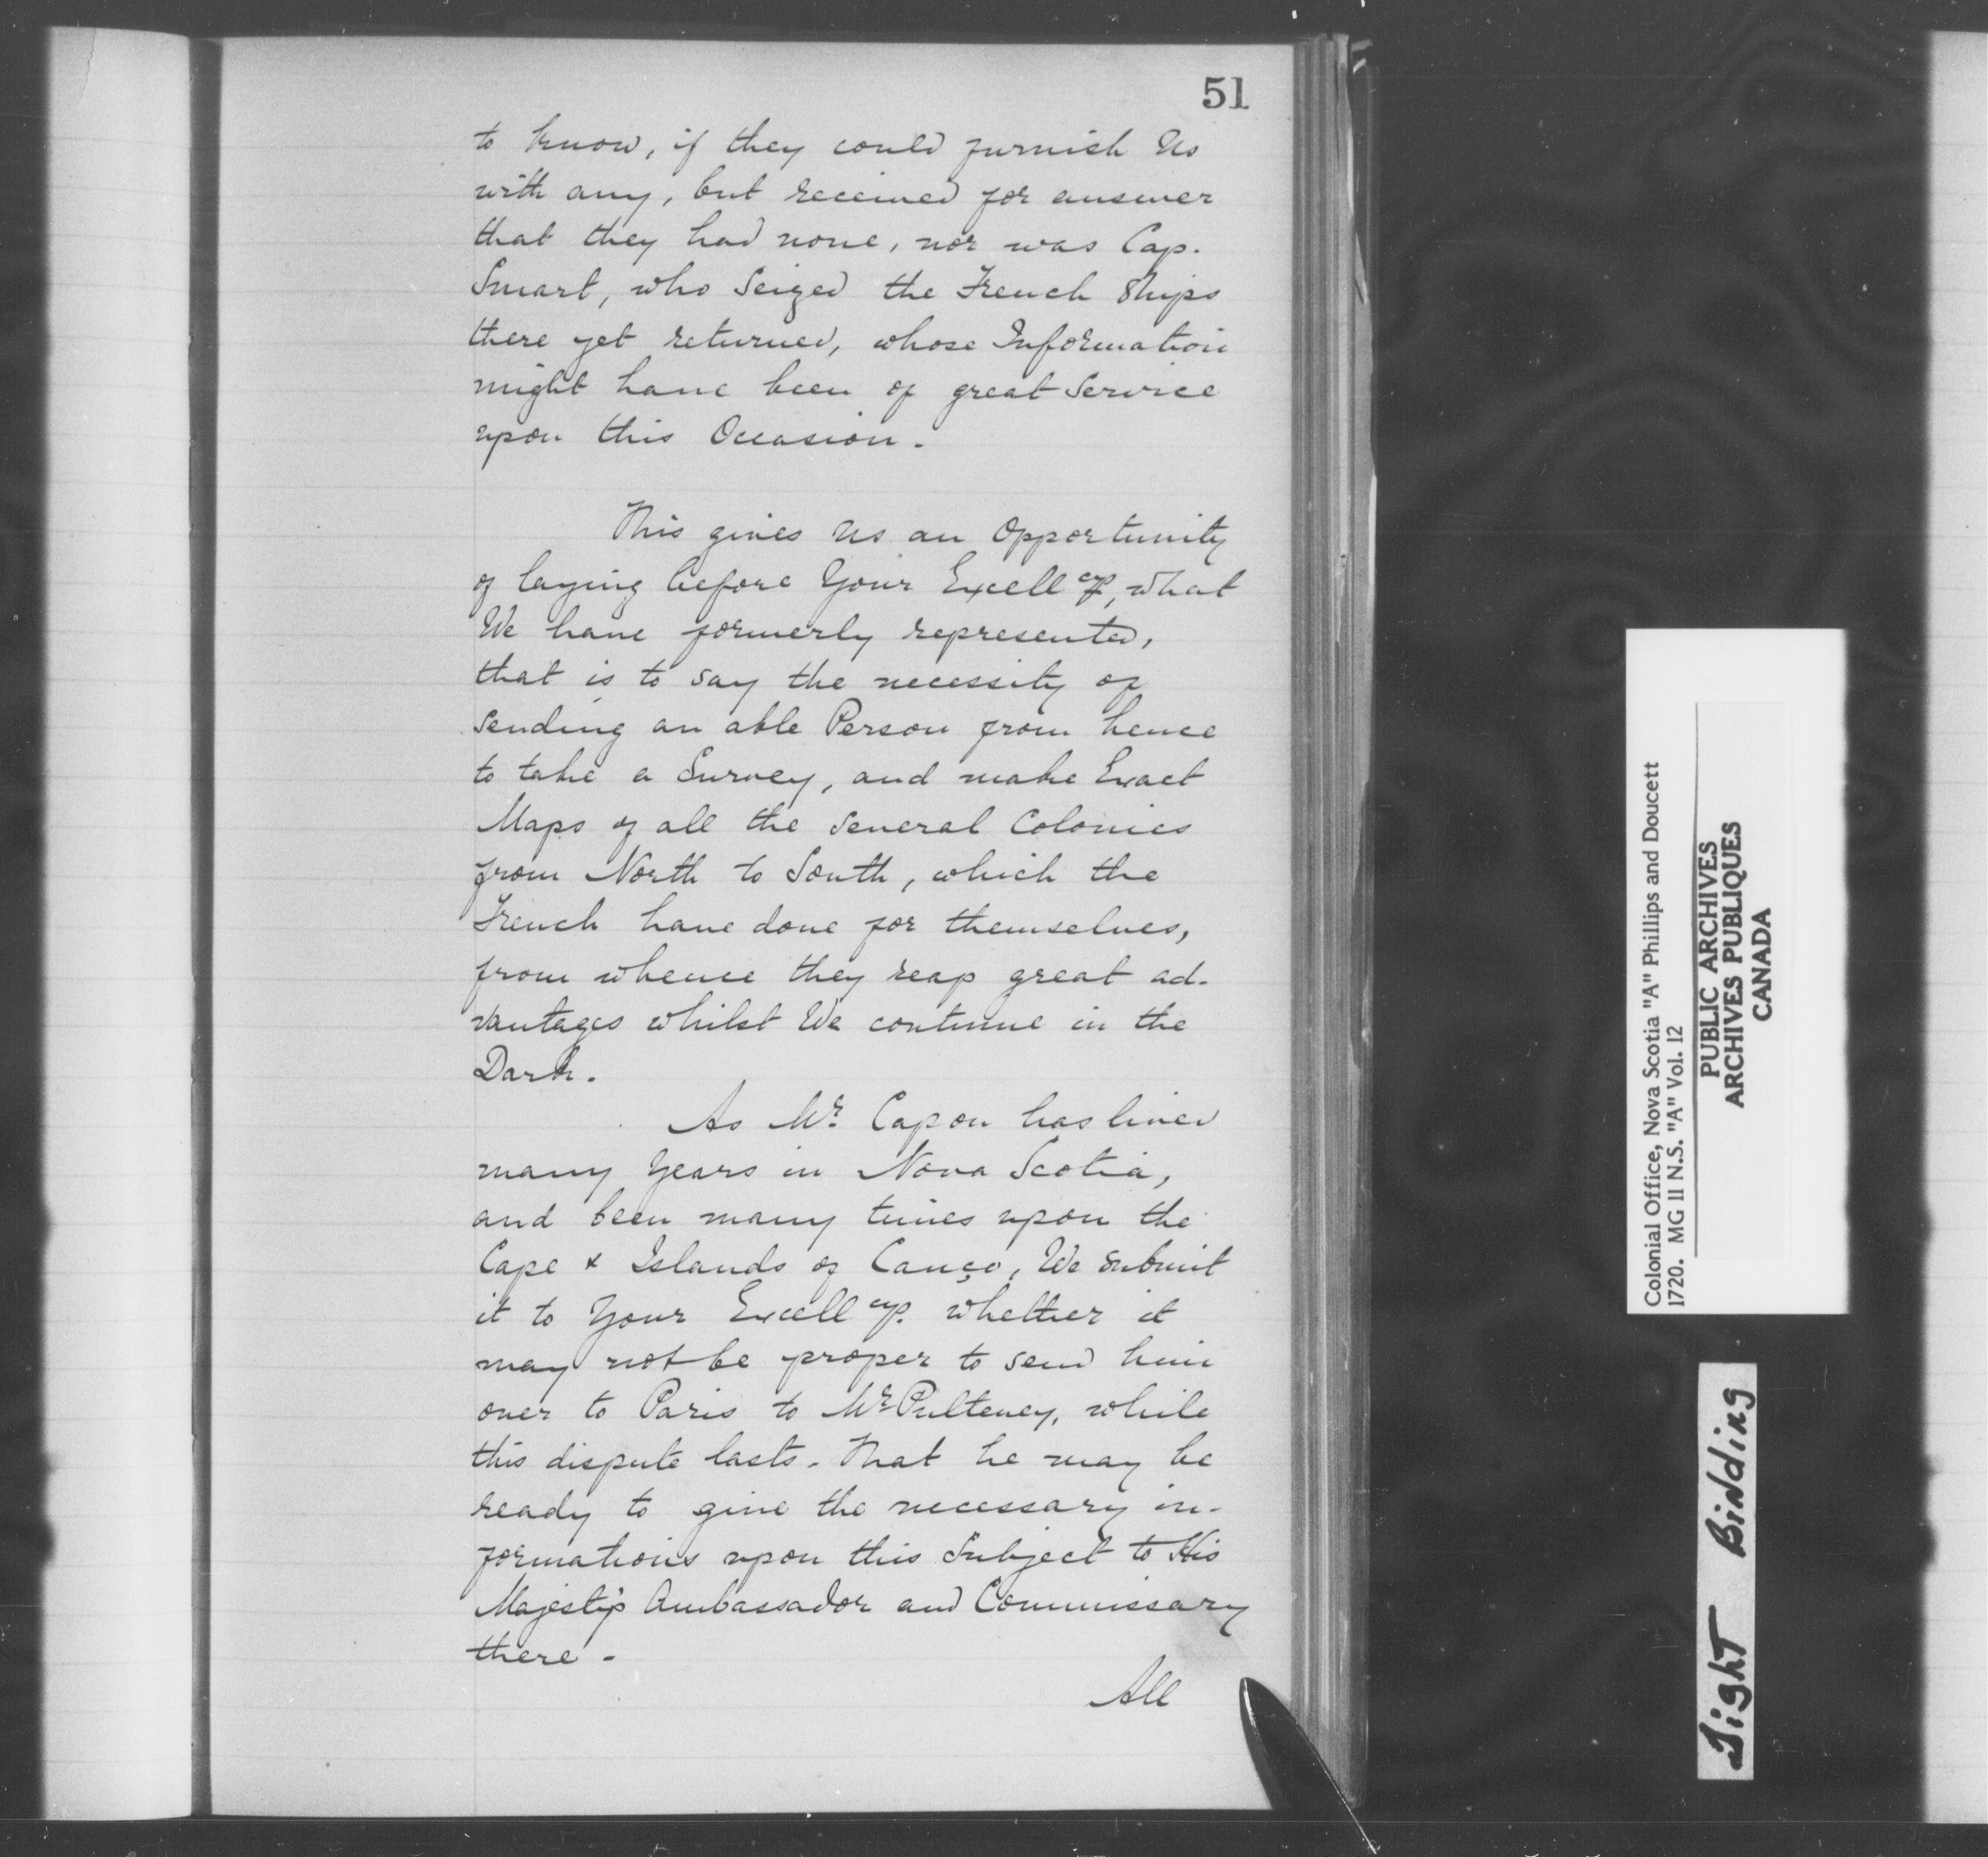 51
to know, if they could furnish Us
with any, but received for answer
that they had none, nor was Cap.
Smart, who Seized the French Ships
there yet returned, whose Information
might have been of great Service
upon this Occasion.
This gives Us an Opportunity
of laying before Your Excellcys, what
We have formerly represented,
that is to say the necessity of
sending an able Person from hence
to take a Survey, and make Exact
Maps of all the several Colonies
from North to South, which the
French have done for themselves,
from whence they reap great ad-
vantages whilst We continue in the
Dark.
As Mr. Capon has lived
many Years in Nova Scotia,
and been many times upon the
Cape & Islands of Canço, We submit
it to Your Excellcys. whether it
may not be proper to send him
over to Paris to Mr Pulteney, while
this dispute lasts. That he may be
ready to give the necessary in-
formations upon this Subject to His
Majesty's Ambassador and Commissary
there.
All
Colonial Office, Nova Scotia "A" Phillips and Doucett
1720. MG 11 N.S. "A" Vol. 12
PUBLIC ARCHIVES
ARCHIVES PUBLIQUES
CANADA
Tight Bidding